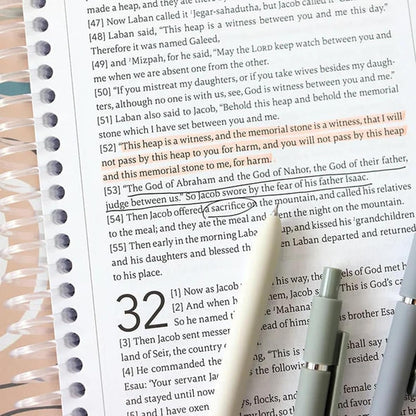 made a heap, and they ate
[47] Now Laban called it ᶠJegar-sahadutha, but Jacob called it
[48] Laban said, “This heap is a witness between you and me this day.”
Therefore it was named Galeed,
[49] and ᶠMizpah, for he said, “May the LORD keep watch between you and
me when we are absent one from the other.
[50] “If you mistreat my daughters, or if you take wives besides my daugh-
ters, although no one is with us, see, God is witness between you and me.”
[51] Laban also said to Jacob, “Behold this heap and behold the memorial
stone which I have set between you and me.
[52] “This heap is a witness, and the memorial stone is a witness, that I will
not pass by this heap to you for harm, and you will not pass by this heap
and this memorial stone to me, for harm.
[53] “The God of Abraham and the God of Nahor, the God of their father,
judge between us.” So Jacob swore by the fear of his father Isaac.
[54] Then Jacob offered a sacrifice on the mountain, and called his relatives
to the meal; and they ate the meal and spent the night on the mountain.
[55] Then early in the morning Laban up, and kissed his ᶠgrandchildren
and his daughters and blessed Laban departed and returned
to his place.
32
[1] Now as Jacob his way, the of God met
[2] And when he Jacob “This is God's
So he named Mahana
[3] Then Jacob sent ahead of himself his brother Esau
land of Seir, the country
[4] He commanded “This shall say
Esau: ‘Your servant resided
and stayed until now
[5] and I have oxen flocks, and
my lord, so